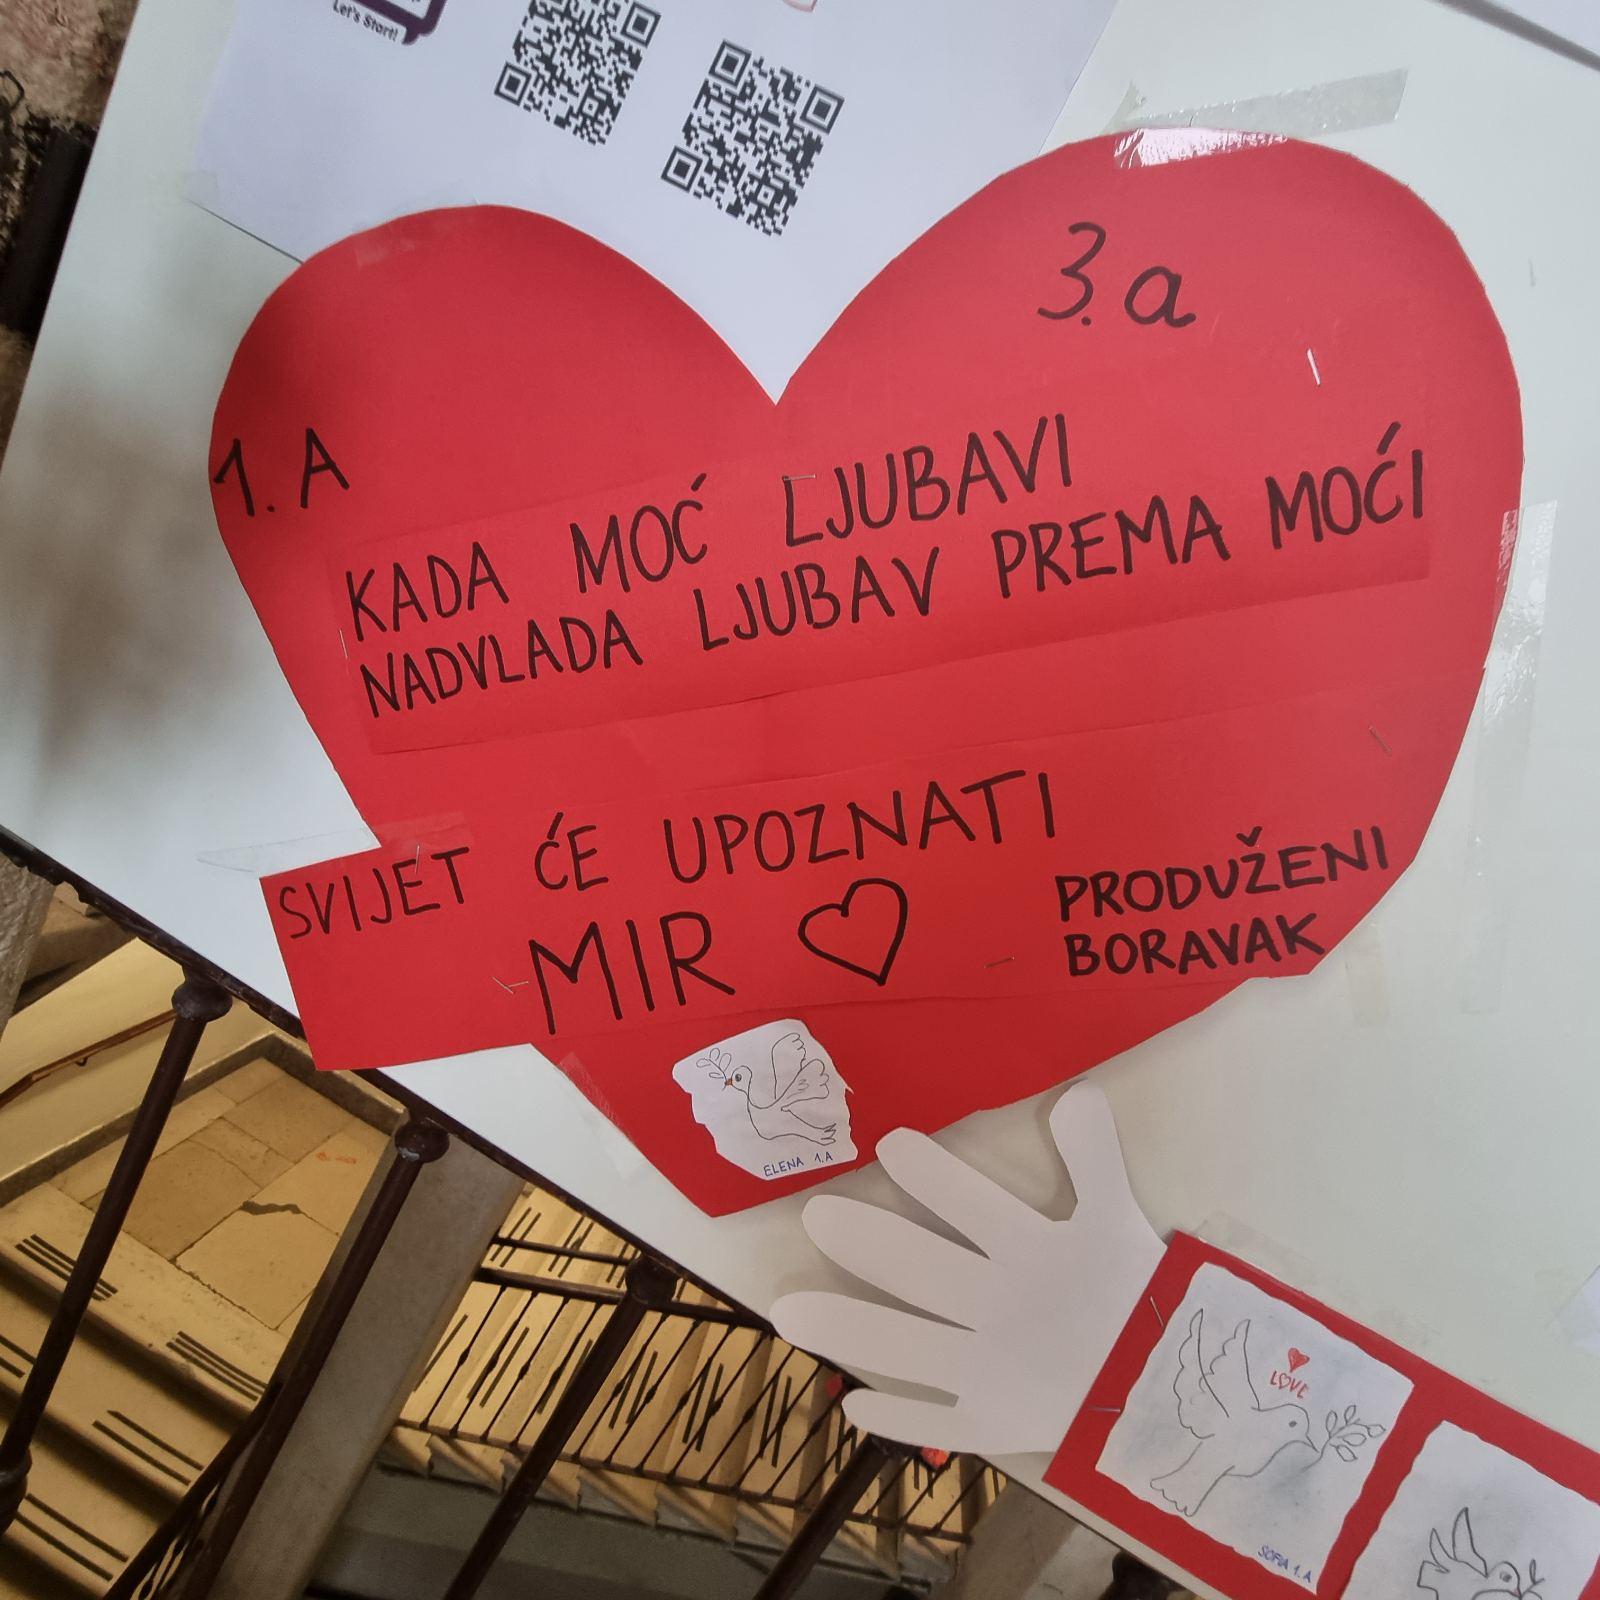 Let's Start!
3. a
1. A
KADA MOĆ LJUBAVI
NADVLADA LJUBAV PREMA MOĆI
SVIJET ĆE UPOZNATI
MIR
PRODUŽENI
BORAVAK
ELENA 1.A
LOVE
SOFIA 1.A